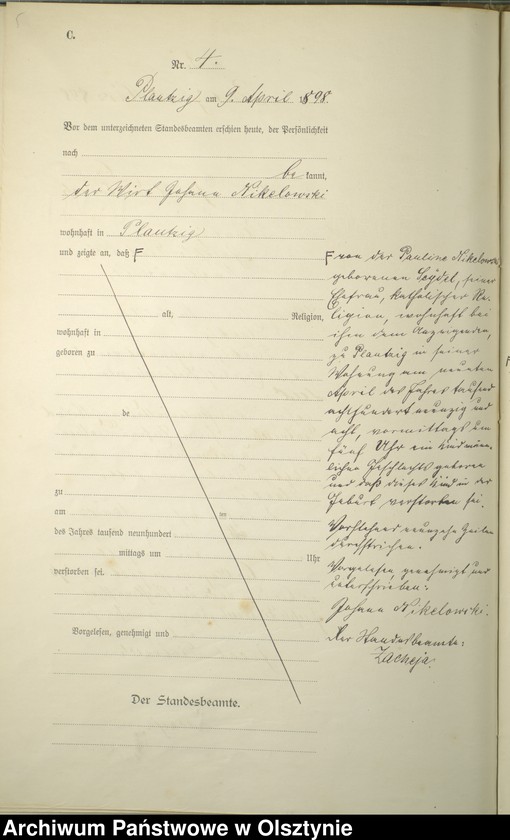 C.
Nr. 4.
Plautzig am 9. April 1898.
Vor dem unterzeichneten Standesbeamten erschien heute, der Persönlichkeit
nach
bekannt,
der Wirt Johann Nikelowski
wohnhaft in Plautzig
und zeigte an, daß F
alt, Religion,
wohnhaft in
geboren zu
de
zu
am ten
des Jahres tausend neunhundert
mittags um Uhr
verstorben sei.
Vorgelesen, genehmigt und
Der Standesbeamte.
F von der Pauline Nikelowski
geborenen Seydel, seiner
Ehefrau, katholischer Re-
ligion, wohnhaft bei
ihm dem Anzeigenden,
zu Plautzig in seiner
Wohnung am neunten
April des Jahres tausend
achthundert neunzig und
acht, vormittags um
fünf Uhr ein Kind männ-
lichen Geschlechts geboren
und daß dieses Kind in der
Geburt verstorben sei.
Vorstehend neunzehn Zeilen
durchstrichen.
Vorgelesen genehmigt und
unterschrieben:
Johann Nikelowski.
Der Standesbeamte:
Zacheja.
Archiwum Państwowe w Olsztynie